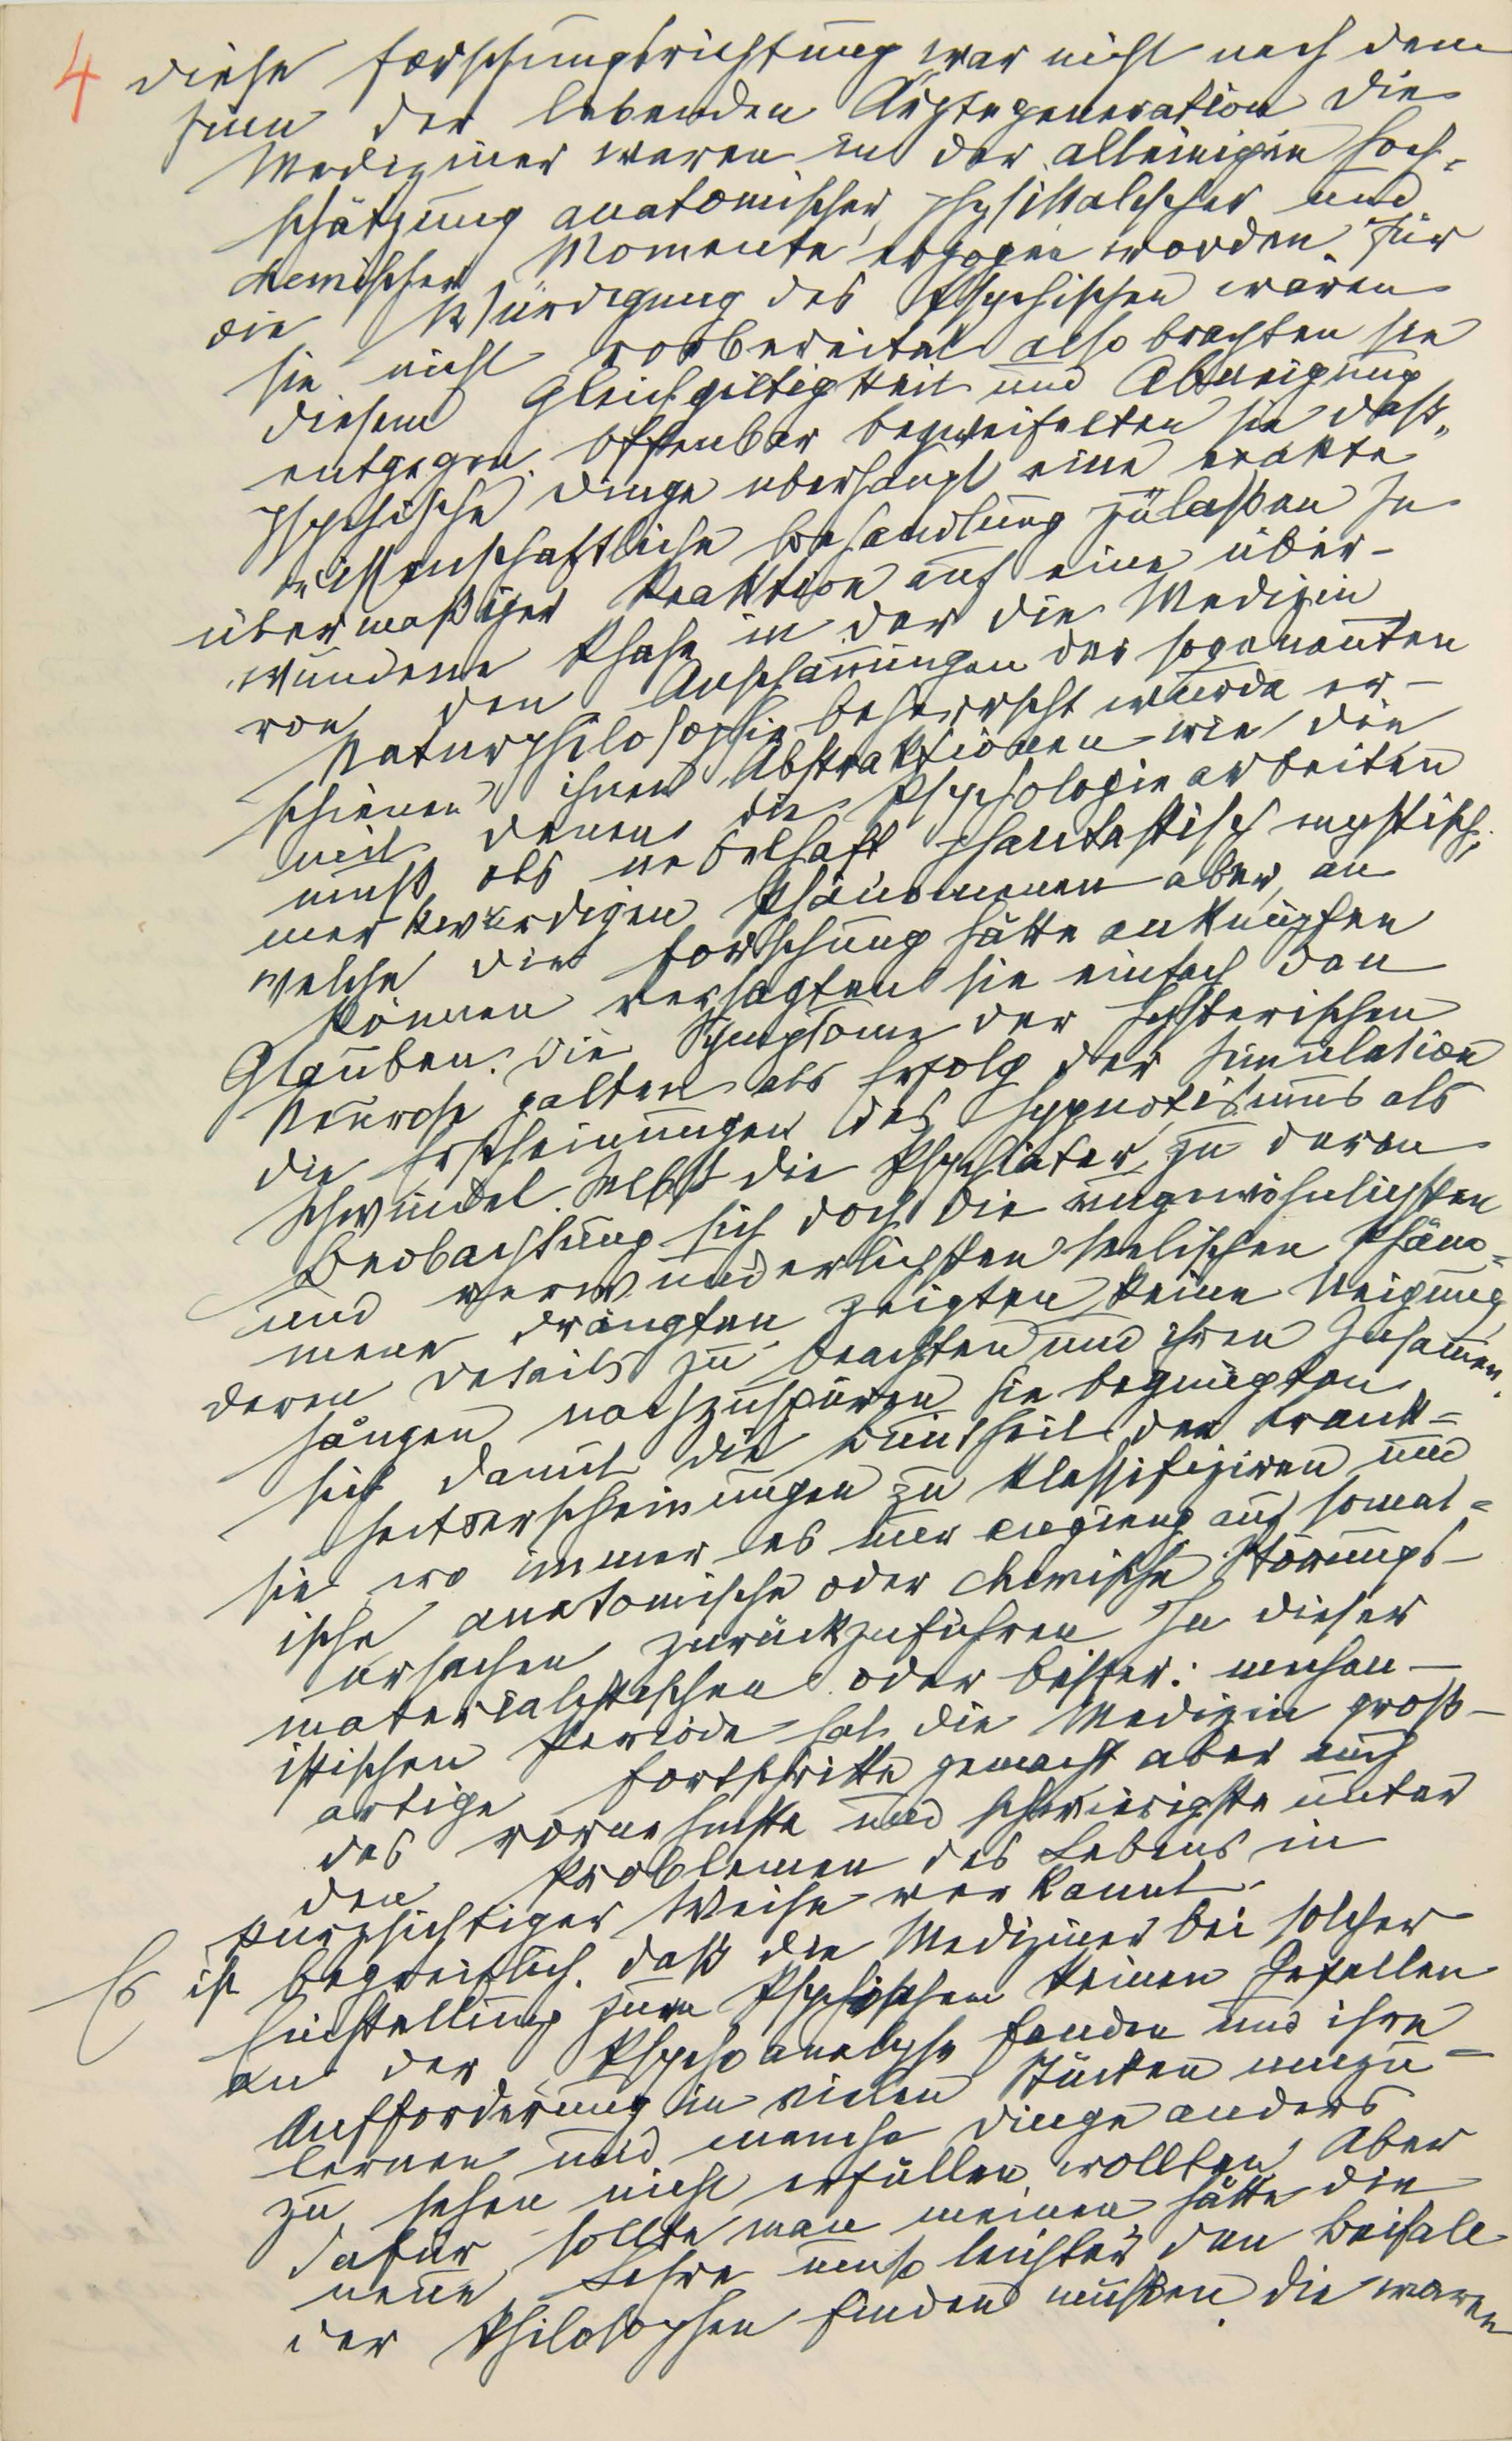 4 diese Forschungsrichtung war nicht nach dem
Sinn der lebenden Ärztegeneration die
Mediziner waren in der alleinigen Hoch=
schätzung anatomischer, physikalischer und
chemischer Momente erzogen worden. Für
die Würdigung des Psychischen waren
sie nicht vorbereitet also brachten sie
diesem Gleichgiltigkeit und Abneigung
entgegen. Offenbar bezweifelten sie daß
psychische Dinge uberhaupt eine exakte
wissenschaftliche Behandlung zulaßen In
übermäßiger Reaktion auf eine über-
wundene Phase in der die Medizin
von den Anschauungen der sogenannten
Naturphilosophie beherrscht wurde er-
schienen ihnen Abstraktionen wie die
mit denen die Psychologie arbeiten
muß als nebelhaft phantastisch mystisch,
merkwürdigen Phänomenen aber, an
welche die Forschung hätte anknüpfen
können versagten sie einfach den
Glauben. Die Symptome der hysterischen
Neurose galten als Erfolg der Simulation
die Erscheinungen des Hypnotismus als
Schwindel. Selbst die Psychiater, zu deren
Beobachtung sich doch die ungewöhnlichsten
und verwunderlichsten seelischen Phäno=
mene drängten, zeigten keine Neigung,
deren Details zu beachten und ihren Zusammen-
hängen nachzuspüren sie begnügten
sich damit die Buntheit der Krank=
heitserscheinungen zu klassifiziren und
sie wo immer es nur anging auf somat=
ische anatomische oder chemische Störungs-
ursachen zurückzuführen In dieser
materialistischen oder besser: mechan-
istischen Periode hat die Medizin groß-
artige Fortschritte gemacht aber auch
das vornehmste und schwierigste unter
den Problemen des Lebens in
kurzsichtiger Weise verkannt.
Es ist begreiflich. daß die Mediziner bei solcher
Einstellung zum Psychischen keinen Gefallen
an der Psychoanalyse fanden und ihre
Aufforderung in vielen Stücken umzu=
lernen und manche Dinge anders
zu sehen nicht erfüllen wollten, Aber
dafür sollte man meinen hätte die
neue Lehre umso leichter den Beifall
der Philosophen finden müssen. die waren